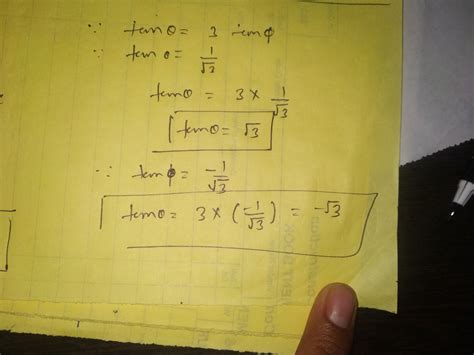 ∵ tanθ = 3 tanϕ
∵ tanθ = 1/√3
tanθ = 3 × 1/√3
tanθ = √3
∵ tanϕ = -1/√3
tanθ = 3 × (-1/√3) = -√3